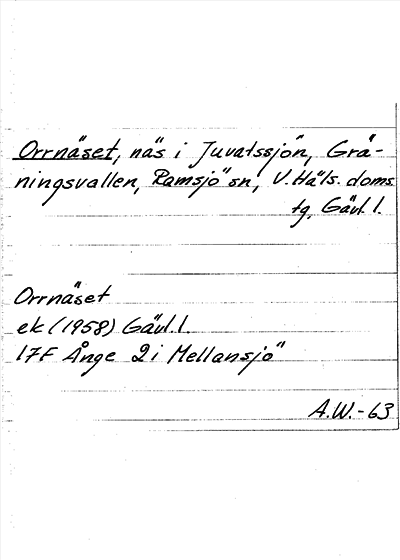 Orrnäset, näs i Juvatssjön, Grä-
ningsvallen, Ramsjö sn, V. Häls. doms.
tg, Gävl. l.
Orrnäset
ek (1958) Gävl. l.
17F Ånge 2 i Mellansjö
A.W.-63